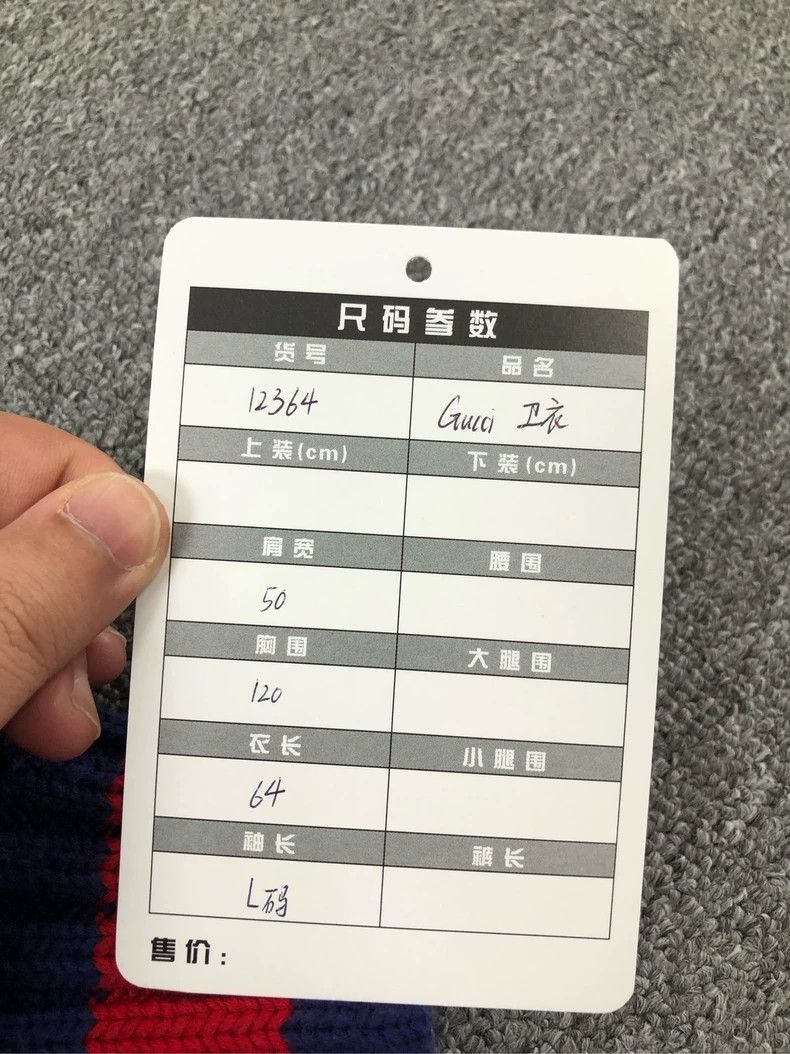 尺码参数
货号 品名
12364 Gucci 卫衣
上装(cm) 下装(cm)
肩宽 腰围
50
胸围 大腿围
120
衣长 小腿围
64
袖长 裤长
L码
售价：